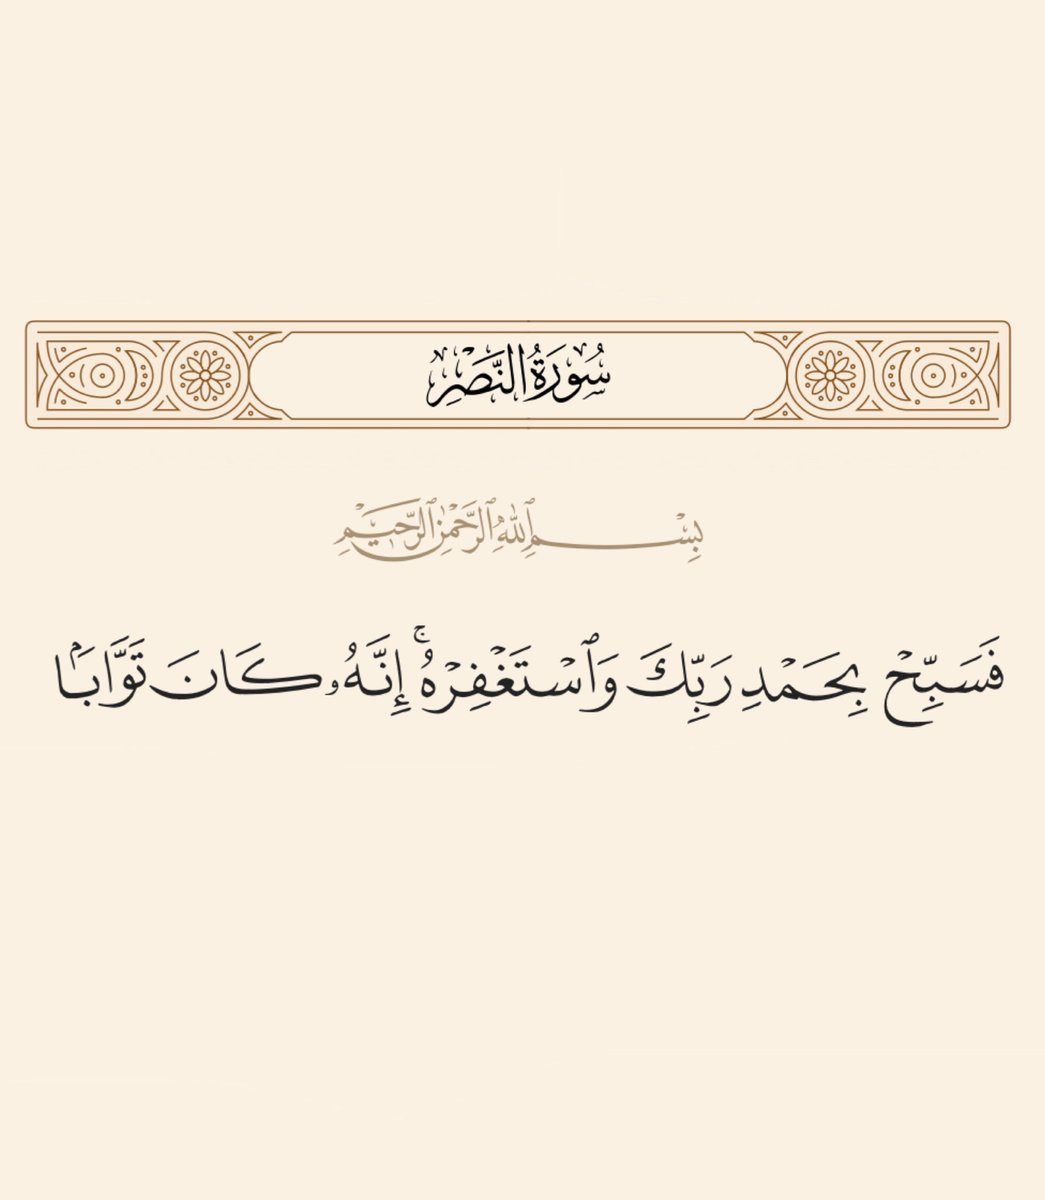 سُورَةُ النَّصْرِ
بِسْمِ ٱللَّهِ ٱلرَّحْمَٰنِ ٱلرَّحِيمِ
فَسَبِّحْ بِحَمْدِ رَبِّكَ وَٱسْتَغْفِرْهُ ۚ إِنَّهُۥ كَانَ تَوَّابَۢا